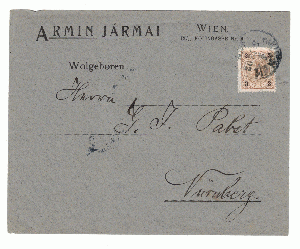 ARMIN JÁRMAI
WIEN,
Wolgeboren
Herrn
G. J. Pabst
Nürnberg.